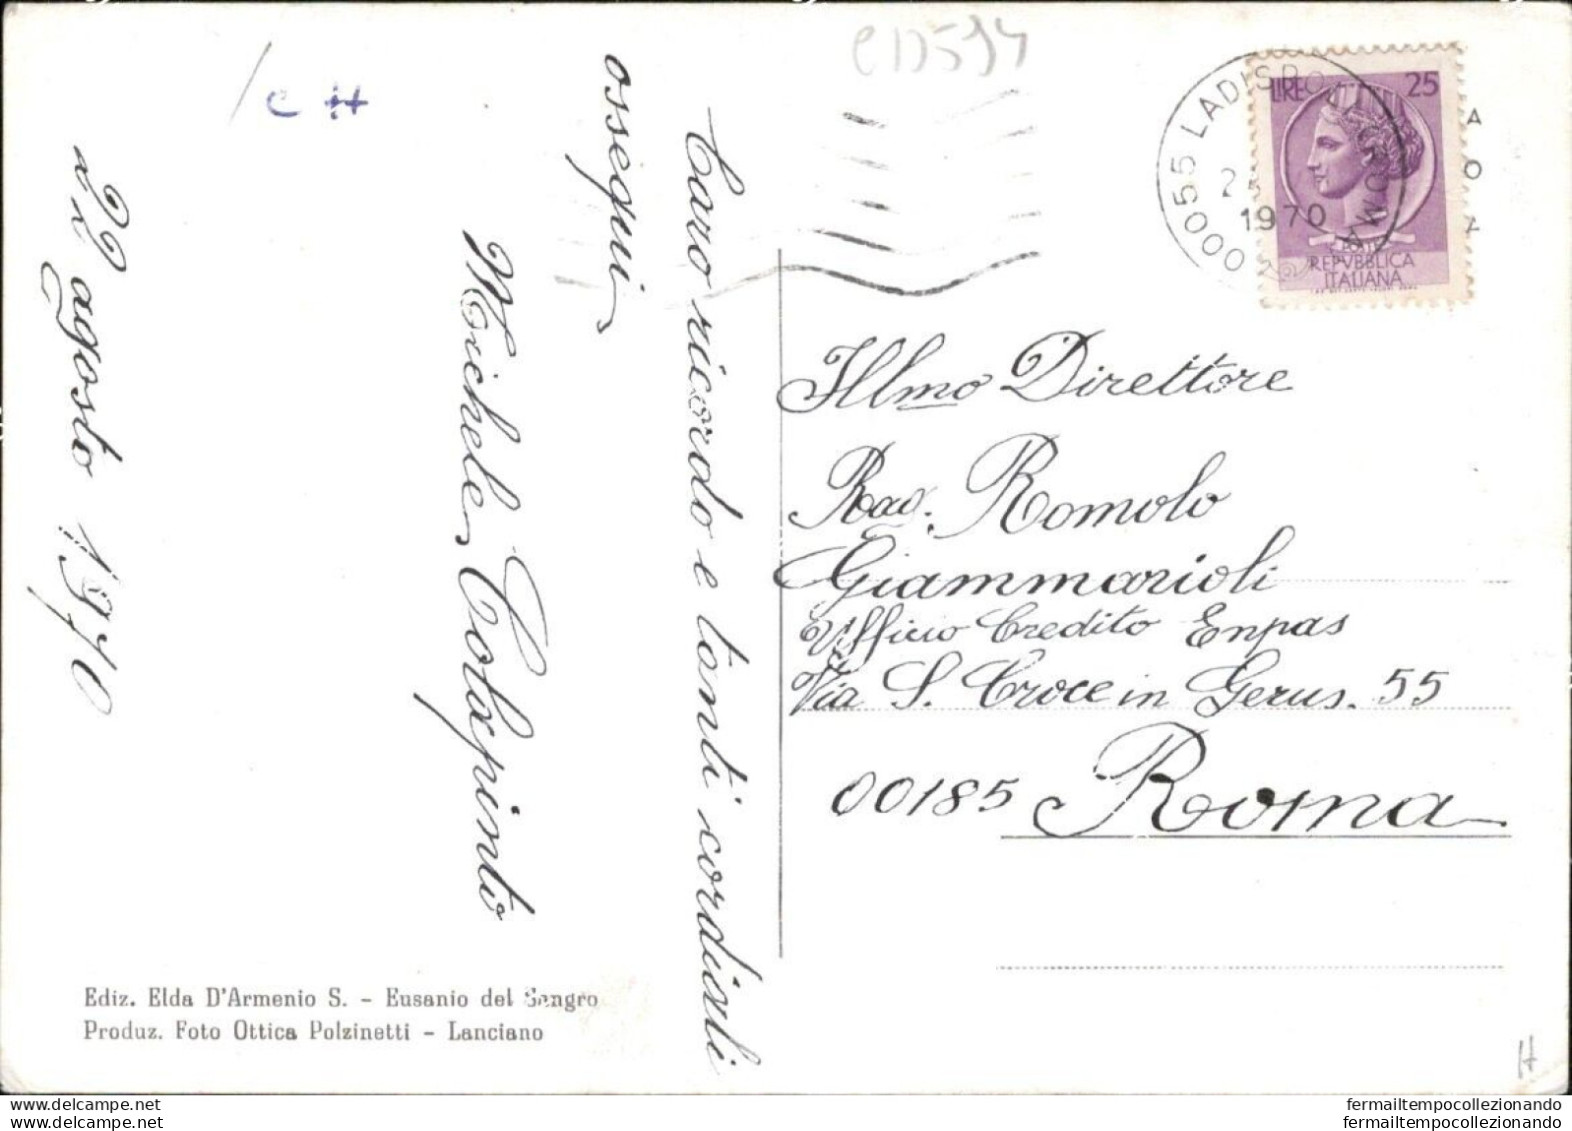 CD594
/CH
Caro ricordo e tanti cordiali
ossequi
Michele Colapinto
22 agosto 1970
Ediz. Elda D'Armenio S. - Eusanio del Sangro
Produz. Foto Ottica Polzinetti - Lanciano
00055 LADISPOLI (ROMA)
1970
LIRE 25
POSTE
REPVBBLICA
ITALIANA
Illmo Direttore
Rag. Romolo
Giammarioli
Ufficio Credito Enpas
Via S. Croce in Gerus. 55
00185 Roma
H
www.delcampe.net
fermailtempocollezionando
fermailtempocollezionando